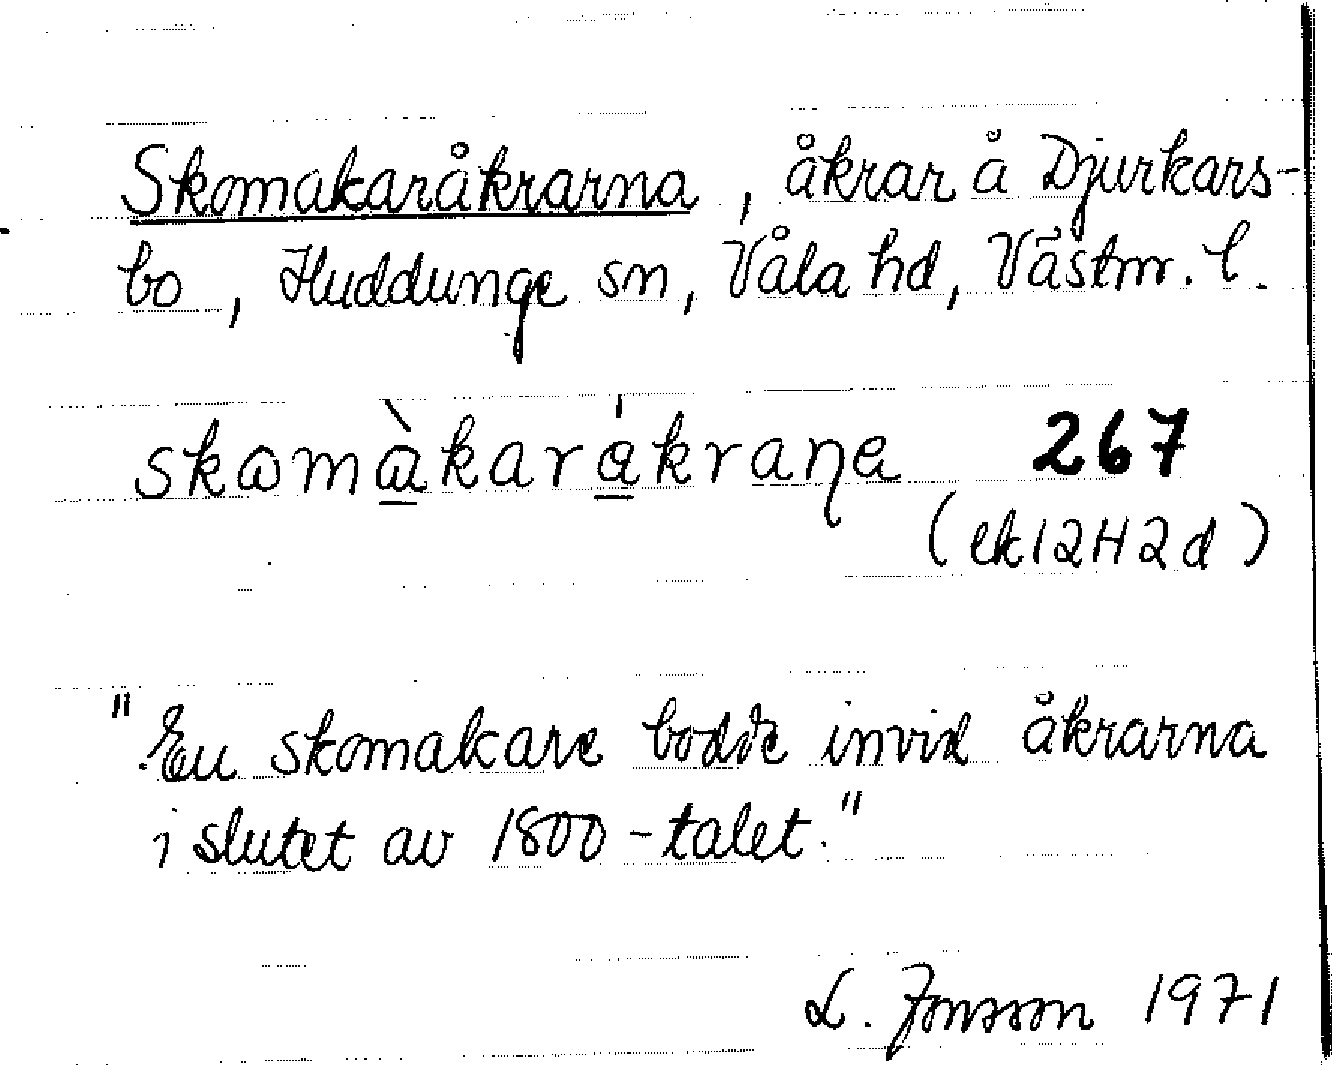 Skomakaråkrarna, åkrar å Djurkars-
bo, Huddunge sn, Våla hd, Västm. l.
skɷmàkarákraṇa 267
(ek 12H2d)
"En skomakare bodde invid åkrarna
i slutet av 1800-talet."
L. Jonsson 1971